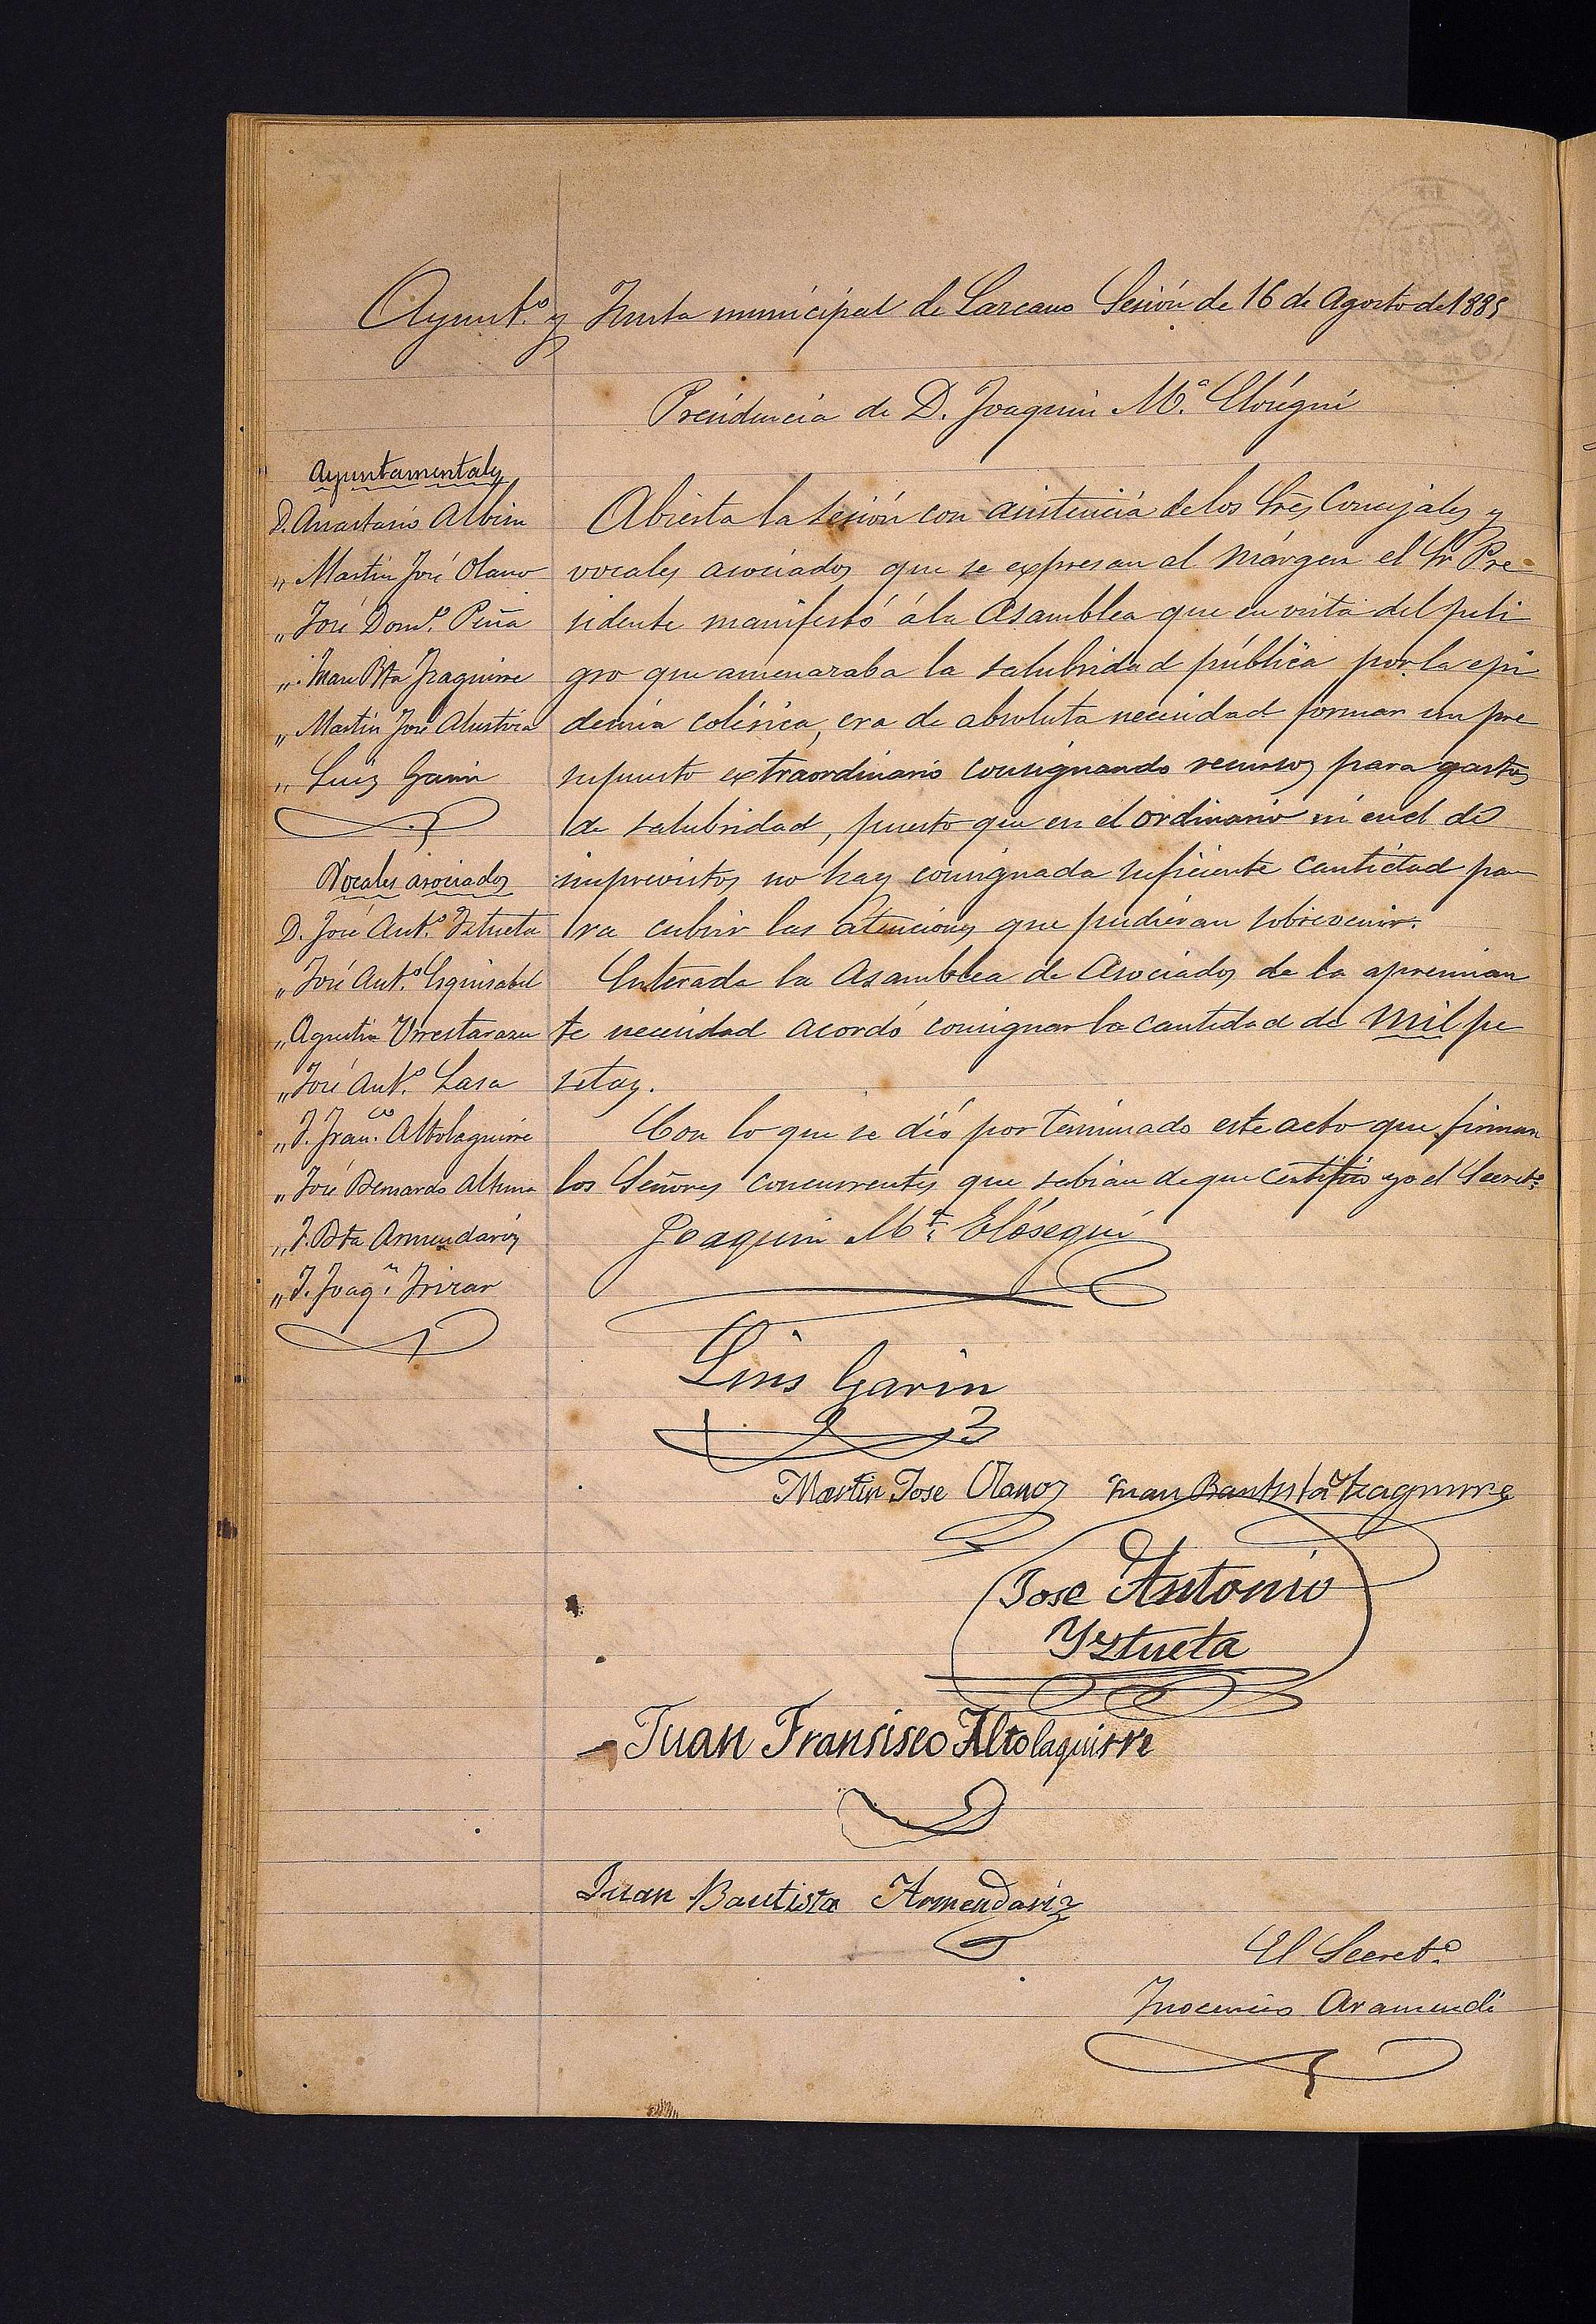 Ayunt.º y Junta municipal de Lazcano Sesión de 16 de Agosto de 1885
Presidencia de D. Joaquin M.ª Elósegui
Ayuntamentales
D. Anastasio Albisu
„ Martin José Olano
„ José Dom.º Peña
„ Juan Bta Yzaguirre
„ Martin José Alustiza
„ Luis Garin
Vocales asociados
D. José Ant.º Iztueta
„ José Ant.º Esquisabel
„ Agustin Urrestarazu
„ José Ant.º Lasa
„ J. Fran.co Altolaguirre
„ José Bernardo Altuna
„ J. Bta Armendariz
„ J. Joaq.n Irizar
Abierta la sesión con asistencia de los Sres Concejales y
vocales asociados que se expresan al márgen el Sr Pre-
sidente manifestó á la Asamblea que en vista del peli
gro que amenazaba la salubridad pública por la epi
demia colérica, era de absoluta necesidad formar un pre
supuesto extraordinario consignando recursos para gastos
de salubridad, puesto que en el ordinario ni en el de
imprevistos no hay consignada suficiente cantidad pa-
ra cubrir las atenciones que pudieran sobrevenir.
Enterada la Asamblea de Asociados de la apremian
te necesidad acordó consignar la cantidad de mil pe
setas.
Con lo que se dió por terminado este acto que firman
los Señores concurrentes que sabian de que certifico yo el Secret.º
Joaquin M.ª Elósegui
Luis Garin
Martin Jose Olano Juan Bautista Yzaguirre
Jose Antonio
Yztueta
Juan Fransisco Altolaguirre
Juan Bautista Armendariz
El Secret.º
Inocencio Aramendi